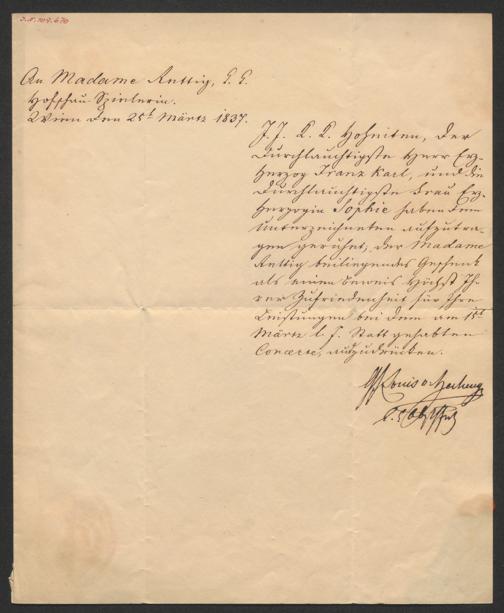 I.N. 109.670
An Madame Rettig, K. K.
Hofschau-Spielerin.
Wien den 25t März 1837.
J. J. K. K. Hoheiten, der
Durchlauchtigste Herr Erz-
herzog Franz Karl, und die
Durchlauchtigste Frau Erz-
herzogin Sophie haben dem
Unterzeichneten aufzutra-
gen geruhet, der Madame
Rettig beiliegendes Geschenk
als einen Beweis Höchst Ih-
rer Zufriedenheit für Ihre
Leistungen bei dem am 15t
März l. J. Statt gehabten
Concerte, auszudrücken.